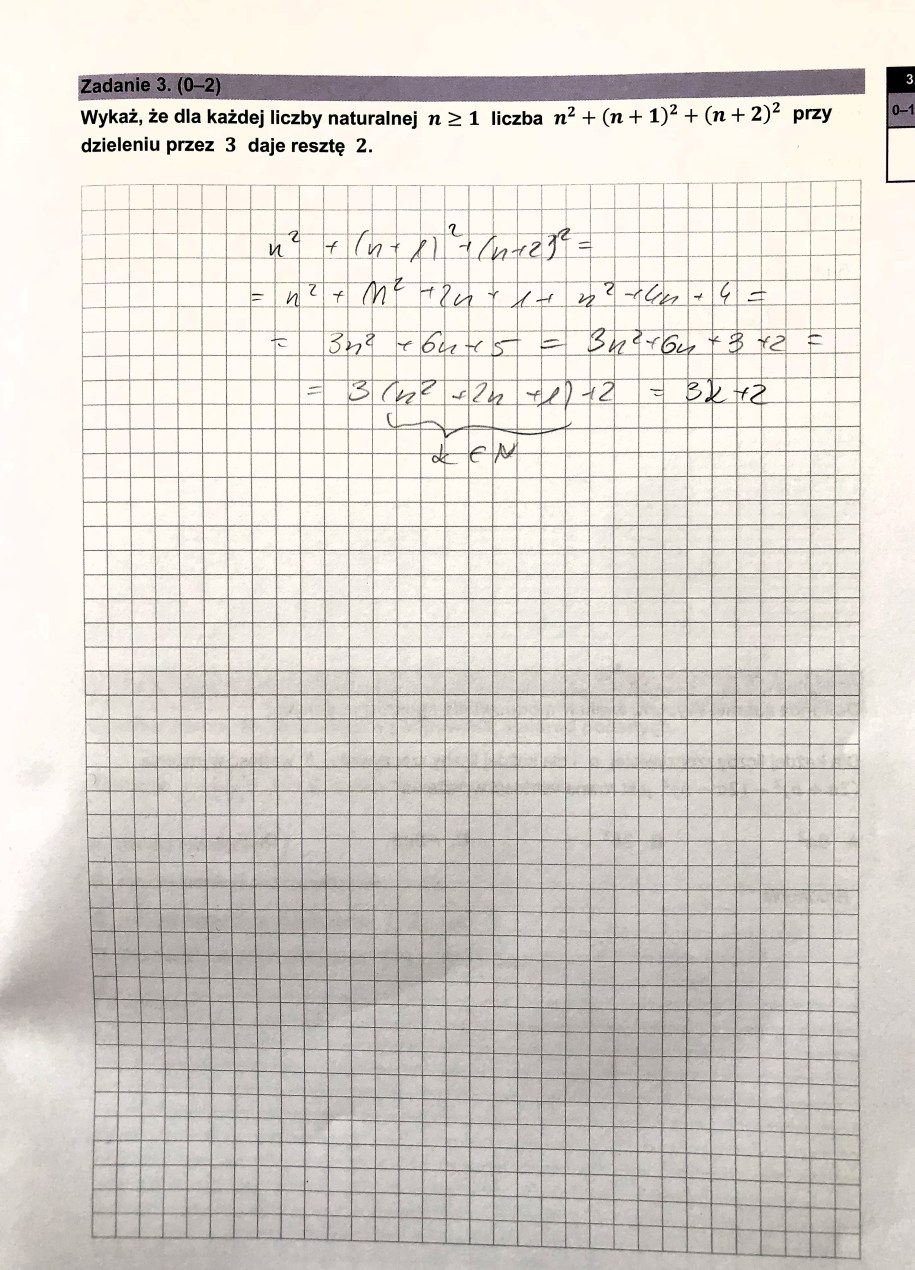 Zadanie 3. (0–2)
Wykaż, że dla każdej liczby naturalnej n ≥ 1 liczba n² + (n + 1)² + (n + 2)² przy
dzieleniu przez 3 daje resztę 2.
3
0–1
n² + (n + 1)² + (n+2)² =
= n² + n² + 2n + 1 + n² + 4n + 4 =
= 3n² + 6n + 5 = 3n² + 6n + 3 + 2 =
= 3 (n² + 2n + 1) + 2 = 3k + 2
k ∈ N